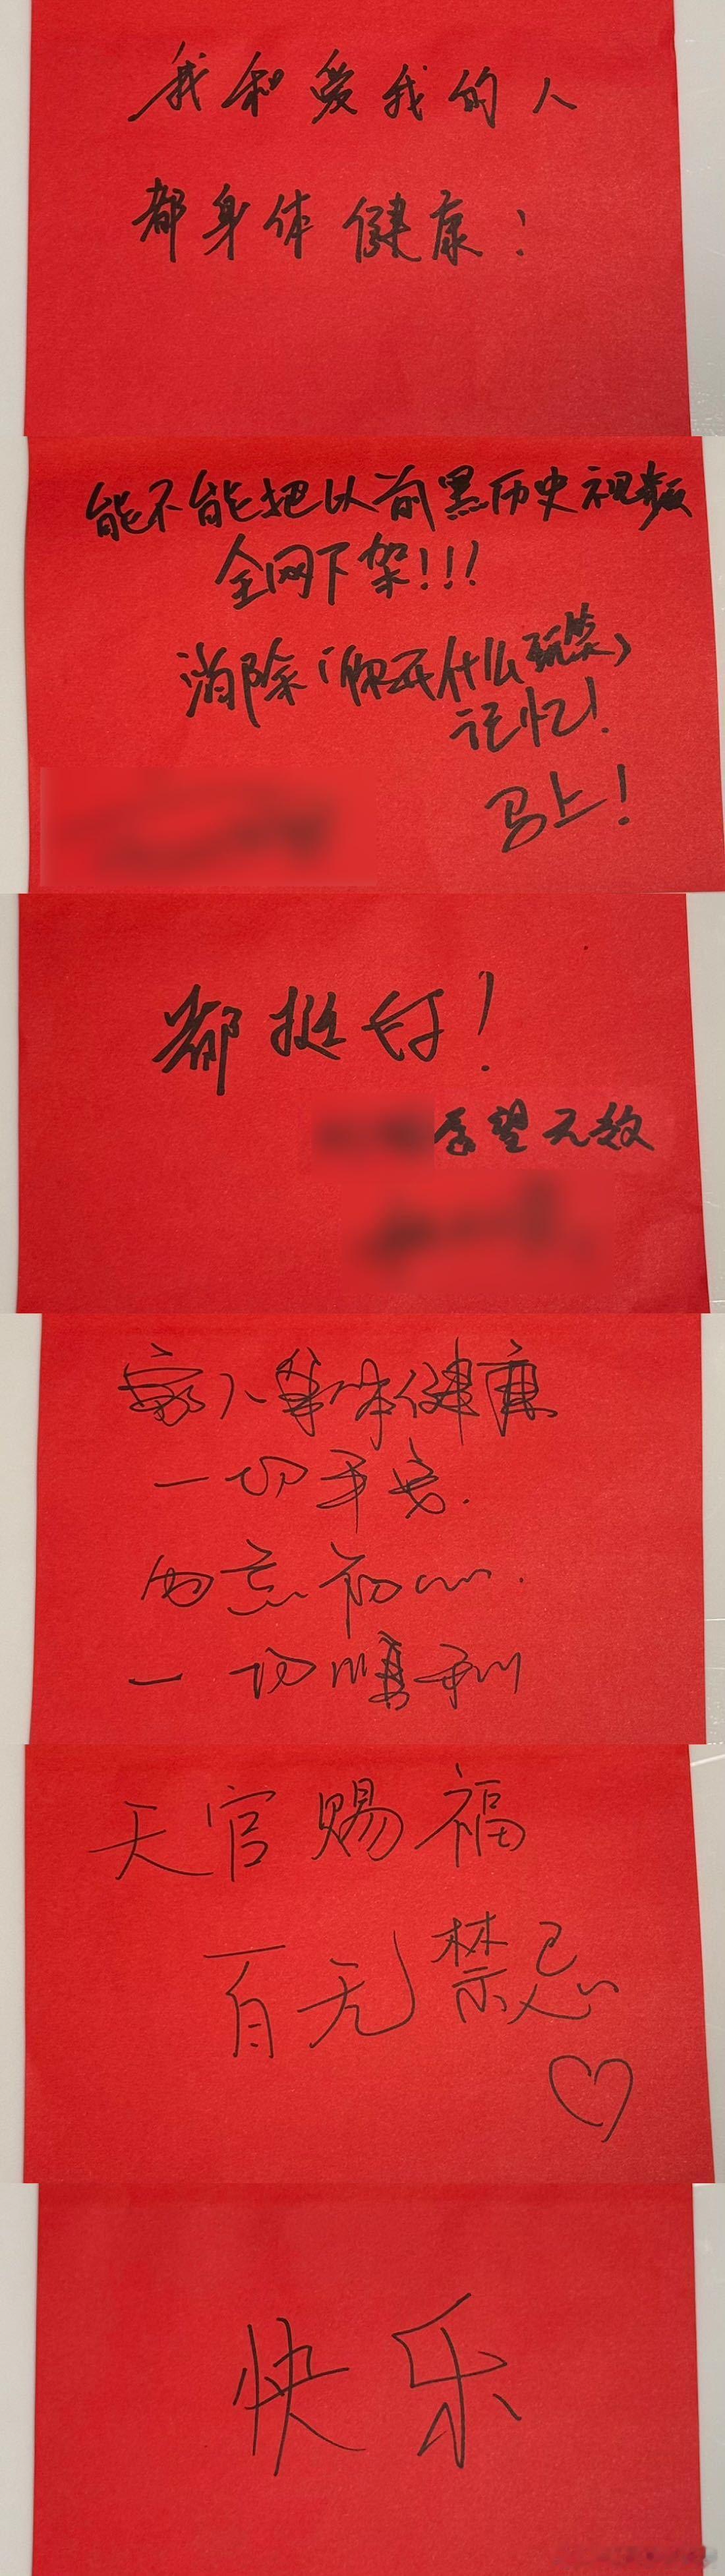 我和爱我的人
都身体健康！
能不能把以前黑历史视频
全网下架!!!
消除「你开什么玩笑」
记忆！
马上！
都挺好！
望无数
家人身体健康
一切平安.
勿忘初心.
一切顺利
天官赐福
百无禁忌
快乐